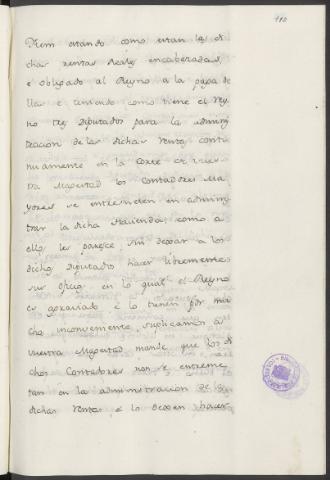 110
Item estando como estan las di
chas rentas Reales encabezadas,
é obligado al Reyno a la paga de
llas é teniendo como tiene el Rey
no tres Diputados para la adminis
tracion de las dichas rentas conti
nuamente en la Corte de vues
tra Magestad los Contadores Ma
yores se entremeten en adminis
trar la dicha Hacienda como a
ellos les parece, sin dexar a los
dichos Diputados hacer libremente
sus oficios en lo qual el Reyno
es agraviado é lo tienen por mu
cho inconveniente, suplicamos a
vuestra Magestad mande que los di
chos Contadores non se entreme
tan en la administracion de las
dichas rentas é lo dexen hacer